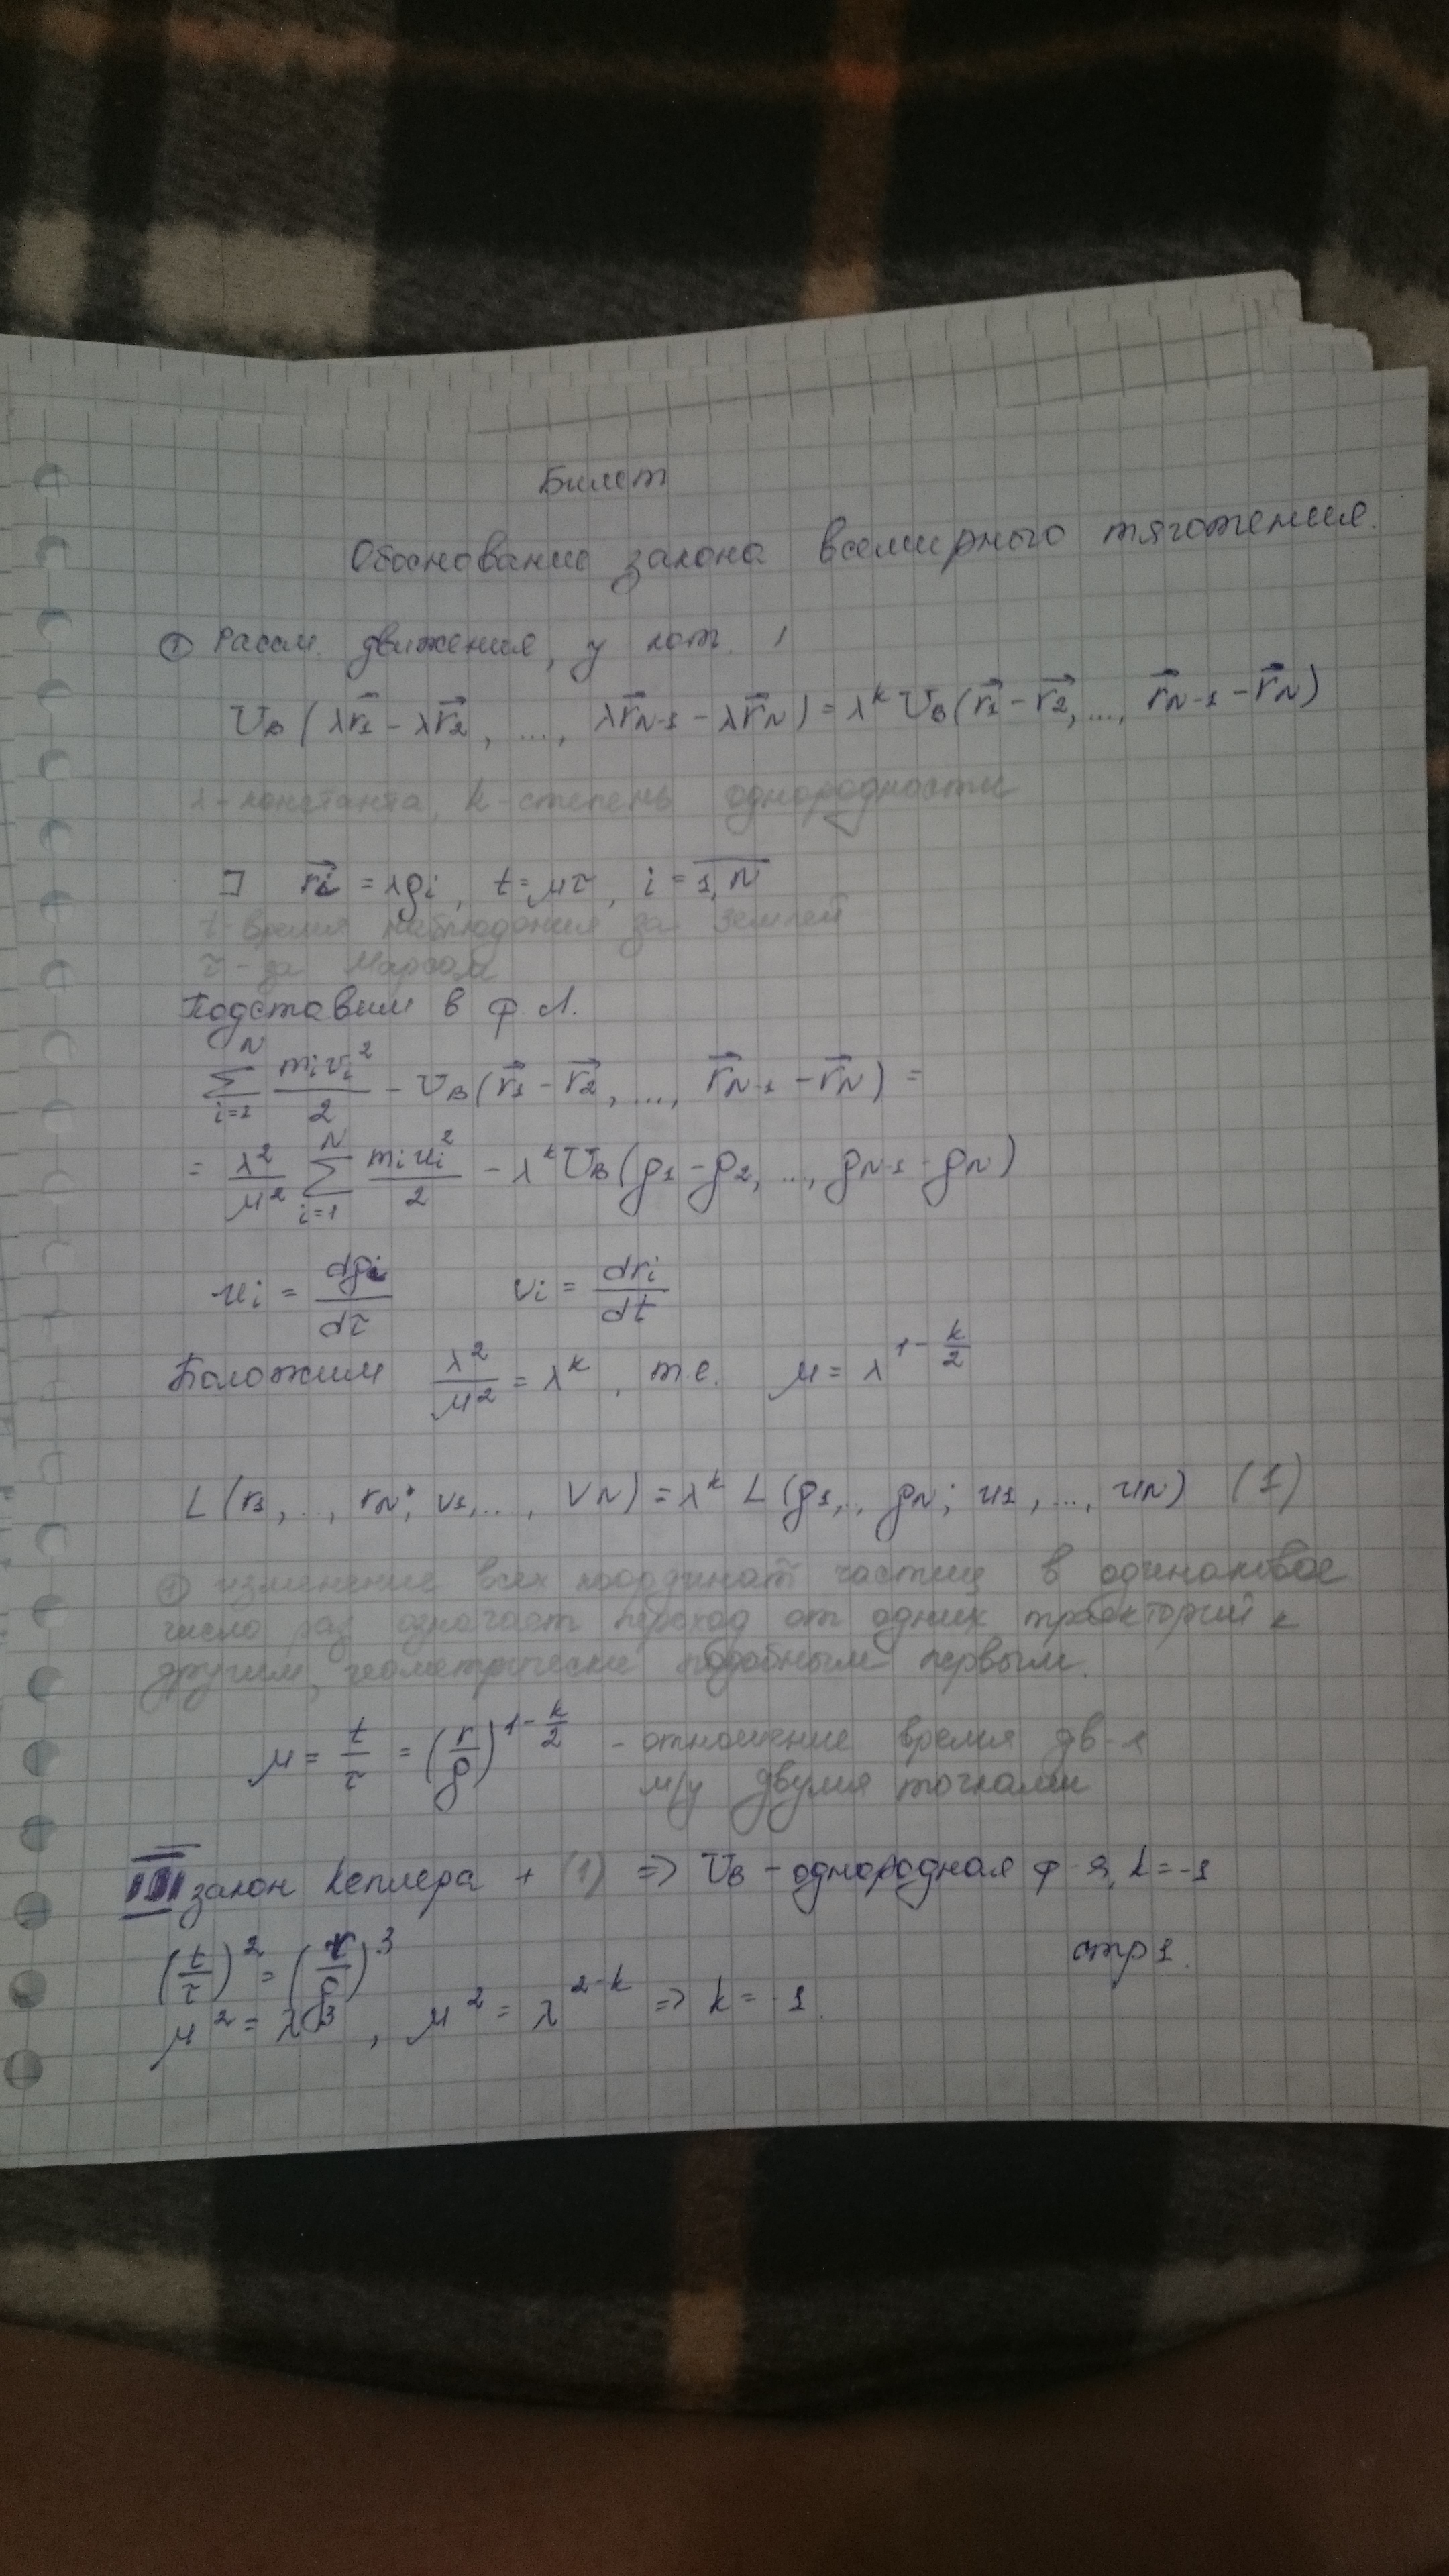 Билет
Обоснование закона всемирного тяготения.
① Рассм. движения, у кот.
U_B (λr⃗1 - λr⃗2, ..., λr⃗N-1 - λr⃗N) = λ^k U_B (r⃗1 - r⃗2, ..., r⃗N-1 - r⃗N)
λ - константа, k - степень однородности
∃ r⃗i = λρi, t = μτ, i = 1,N
t - время наблюдения за Землей
τ - за Марсом
Подставим в ф. Л.
∑_{i=1}^{N} mivi²/2 - U_B (r⃗1 - r⃗2, ..., r⃗N-1 - r⃗N) =
= λ²/μ² ∑_{i=1}^{N} miui²/2 - λ^k U_B (ρ1 - ρ2, ..., ρN-1 - ρN)
ui = dρi/dτ vi = dri/dt
Положим λ²/μ² = λ^k, т.е. μ = λ^{1 - k/2}
L (r1, ..., rN; v1, ..., vN) = λ^k L (ρ1, .., ρN; u1, ..., uN) (1)
① изменение всех координат частиц в одинаковое
число раз означает переход от одних траекторий к
другим, геометрически подобным первым.
μ = t/τ = (r/ρ)^{1 - k/2} - отношение время дв-я
м/у двумя точками
III закон Кеплера + (1) => U_B - однородная ф-я, k = -1
(t/τ)² = (r/ρ)³
стр 1.
μ² = λ³, μ² = λ^{2-k} => k = -1.